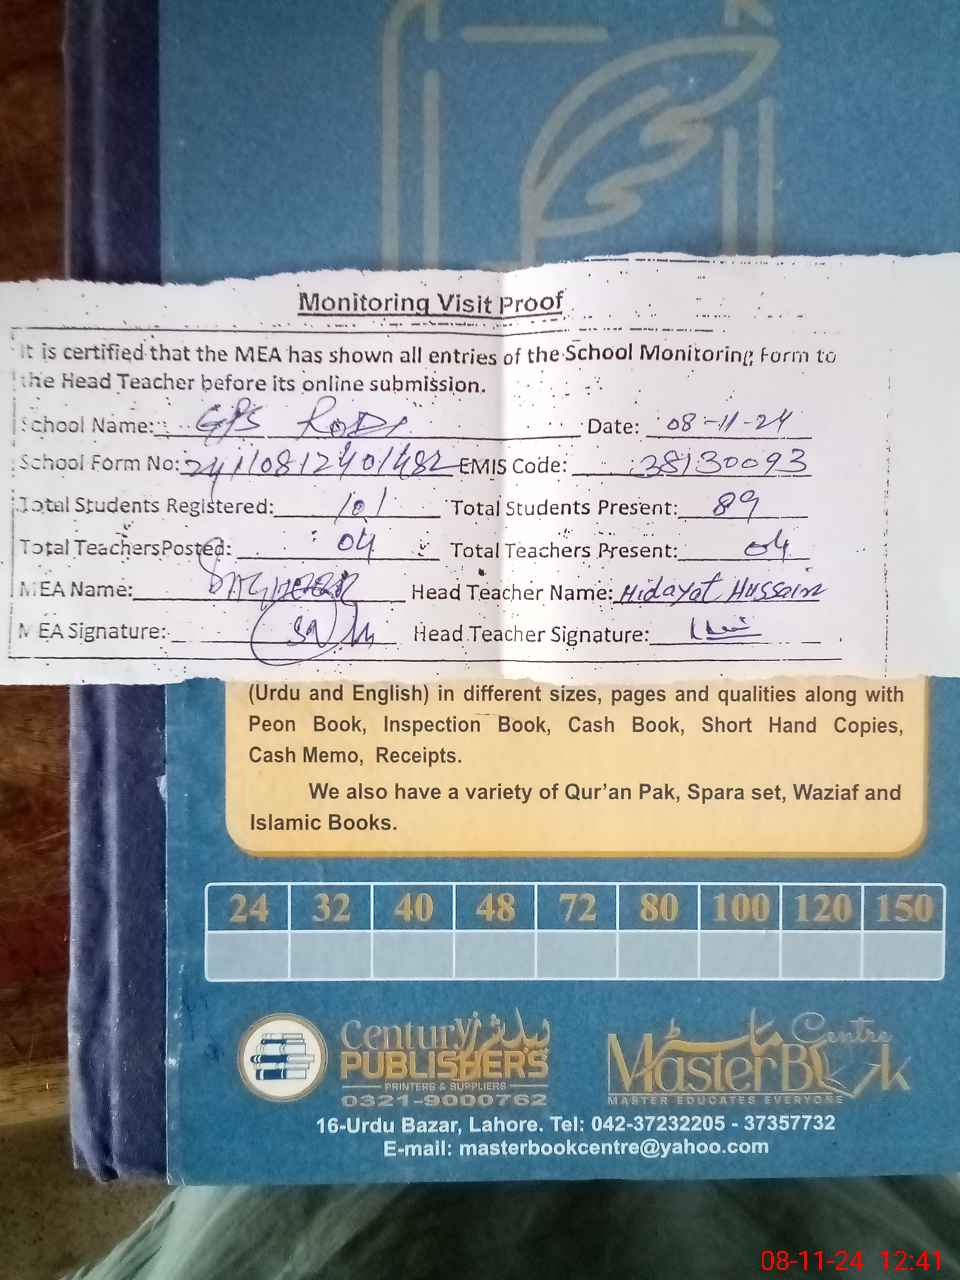 Monitoring Visit Proof
It is certified that the MEA has shown all entries of the School Monitoring Form to
the Head Teacher before its online submission.
School Name: GPS Date: 08-11-24
School Form No: 24110812401482 EMIS Code: 38130093
Total Students Registered: 101 Total Students Present: 89
Total Teachers Posted: 04 Total Teachers Present: 04
MEA Name: Head Teacher Name: Hidayat Hussain
MEA Signature: Head Teacher Signature:
(Urdu and English) in different sizes, pages and qualities along with
Peon Book, Inspection Book, Cash Book, Short Hand Copies,
Cash Memo, Receipts.
We also have a variety of Qur'an Pak, Spara set, Waziaf and
Islamic Books.
24 32 40 48 72 80 100 120 150
Century PUBLISHERS
PRINTERS & SUPPLIERS
0321-9000762
MasterBook Centre
MASTER EDUCATES EVERYONE
16-Urdu Bazar, Lahore. Tel: 042-37232205 - 37357732
E-mail: masterbookcentre@yahoo.com
08-11-24 12:41